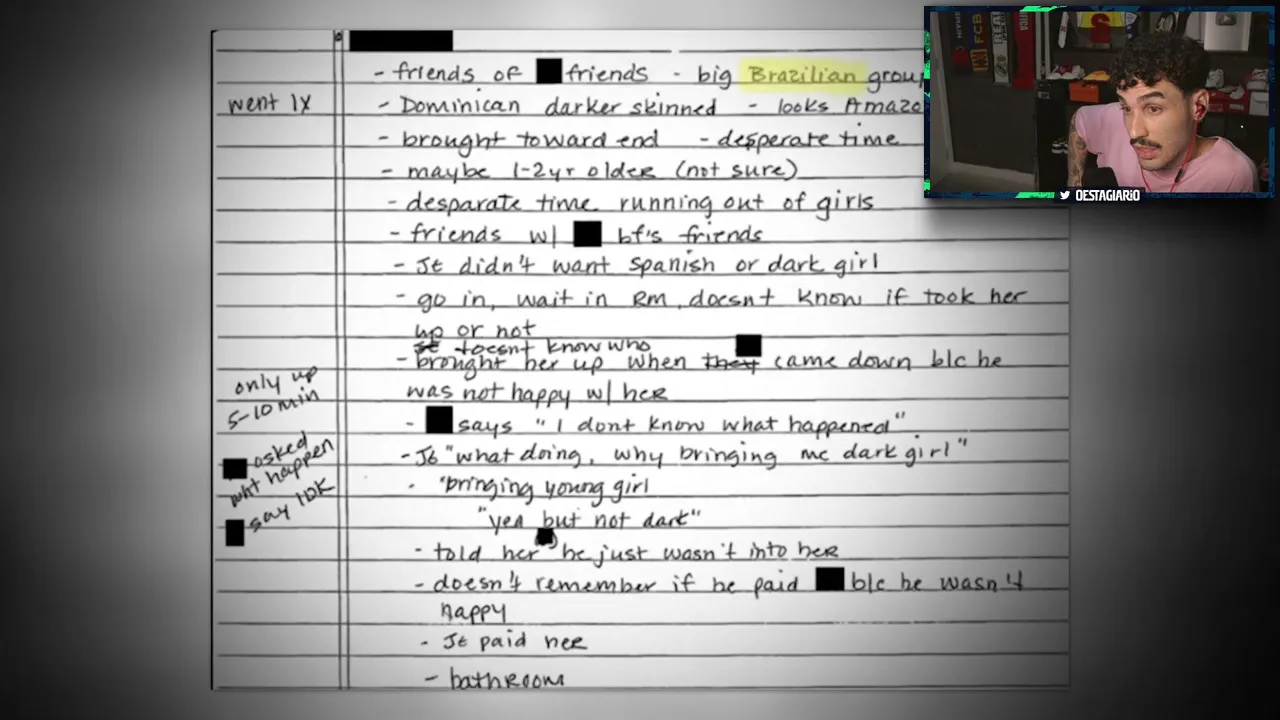 - friends of friends - big Brazilian group
went 1x
- Dominican darker skinned - looks Amazo
- brought toward end - desperate time
- maybe 1-2yr older (not sure)
- desparate time running out of girls
- friends w/ bf's friends
- JE didn't want Spanish or dark girl
- go in, wait in RM, doesnt know if took her
up or not
doesnt know who
- brought her up when they came down b/c he
was not happy w/ her
only up
5-10 min
- says "I dont know what happened"
asked
wht happen
say IDK
- JE "what doing, why bringing me dark girl"
- "bringing young girl
"yea but not dark"
- told her he just wasn't into her
- doesn't remember if he paid b/c he wasn't
happy
- JE paid her
- bathroom
OESTAGIARIO
FCB